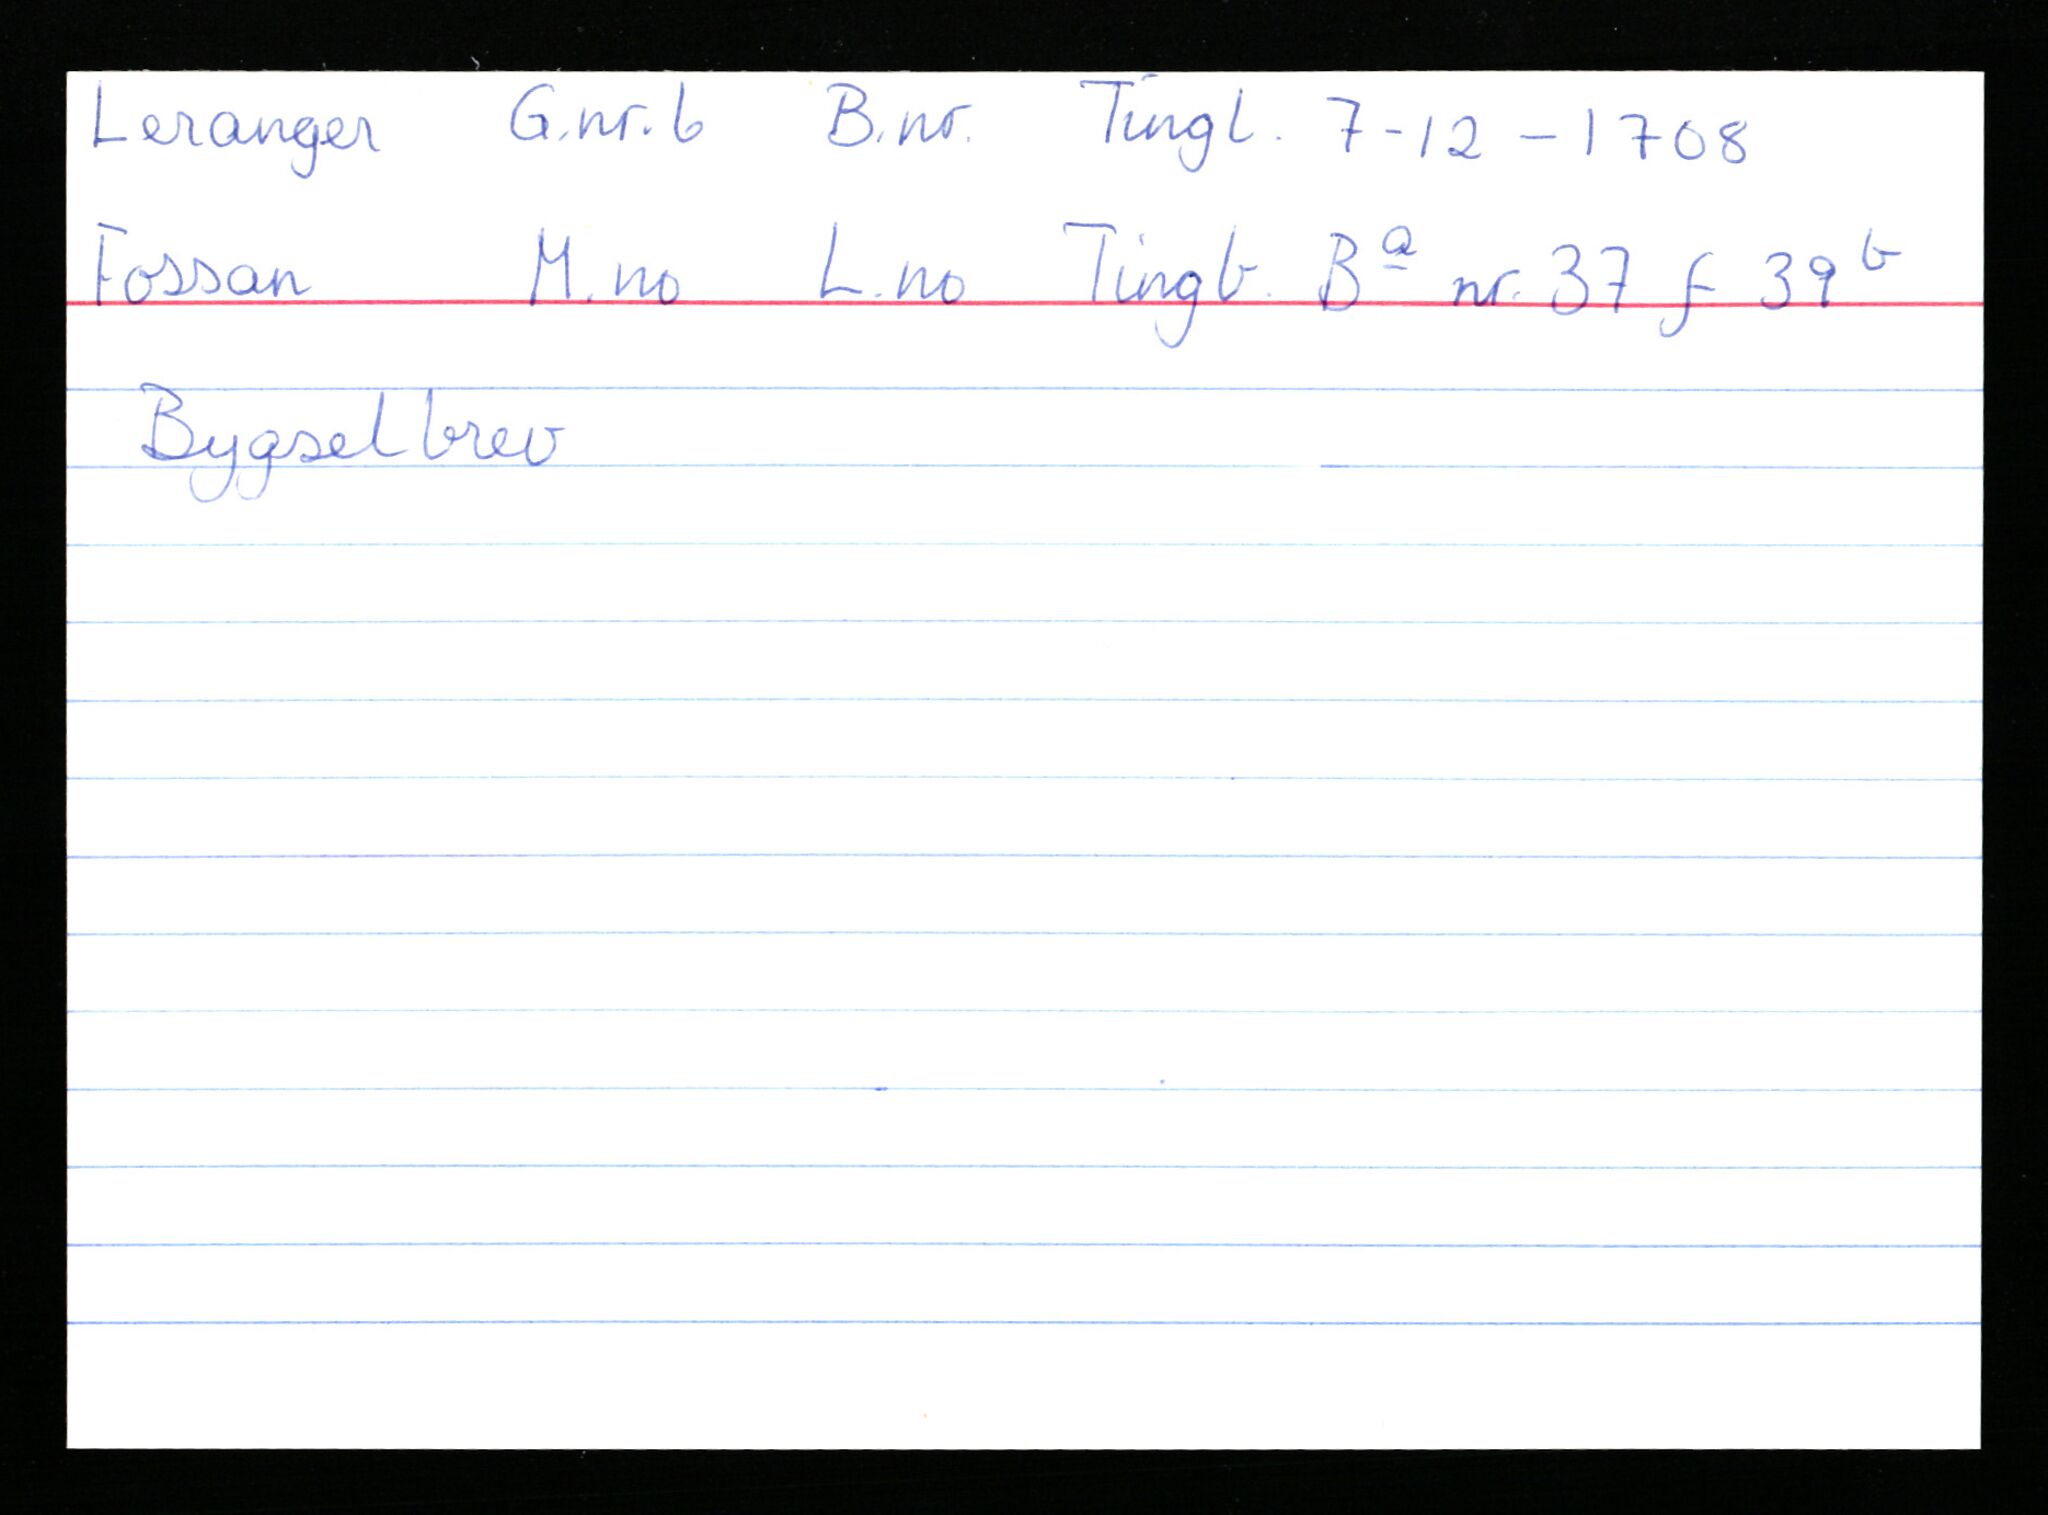 Leranger G.nr. 6 B.nr. Tingl. 7-12-1708
Fossan M.no L.no Tingb. Bª nr. 37 f 39ᵇ
Bygselbrev